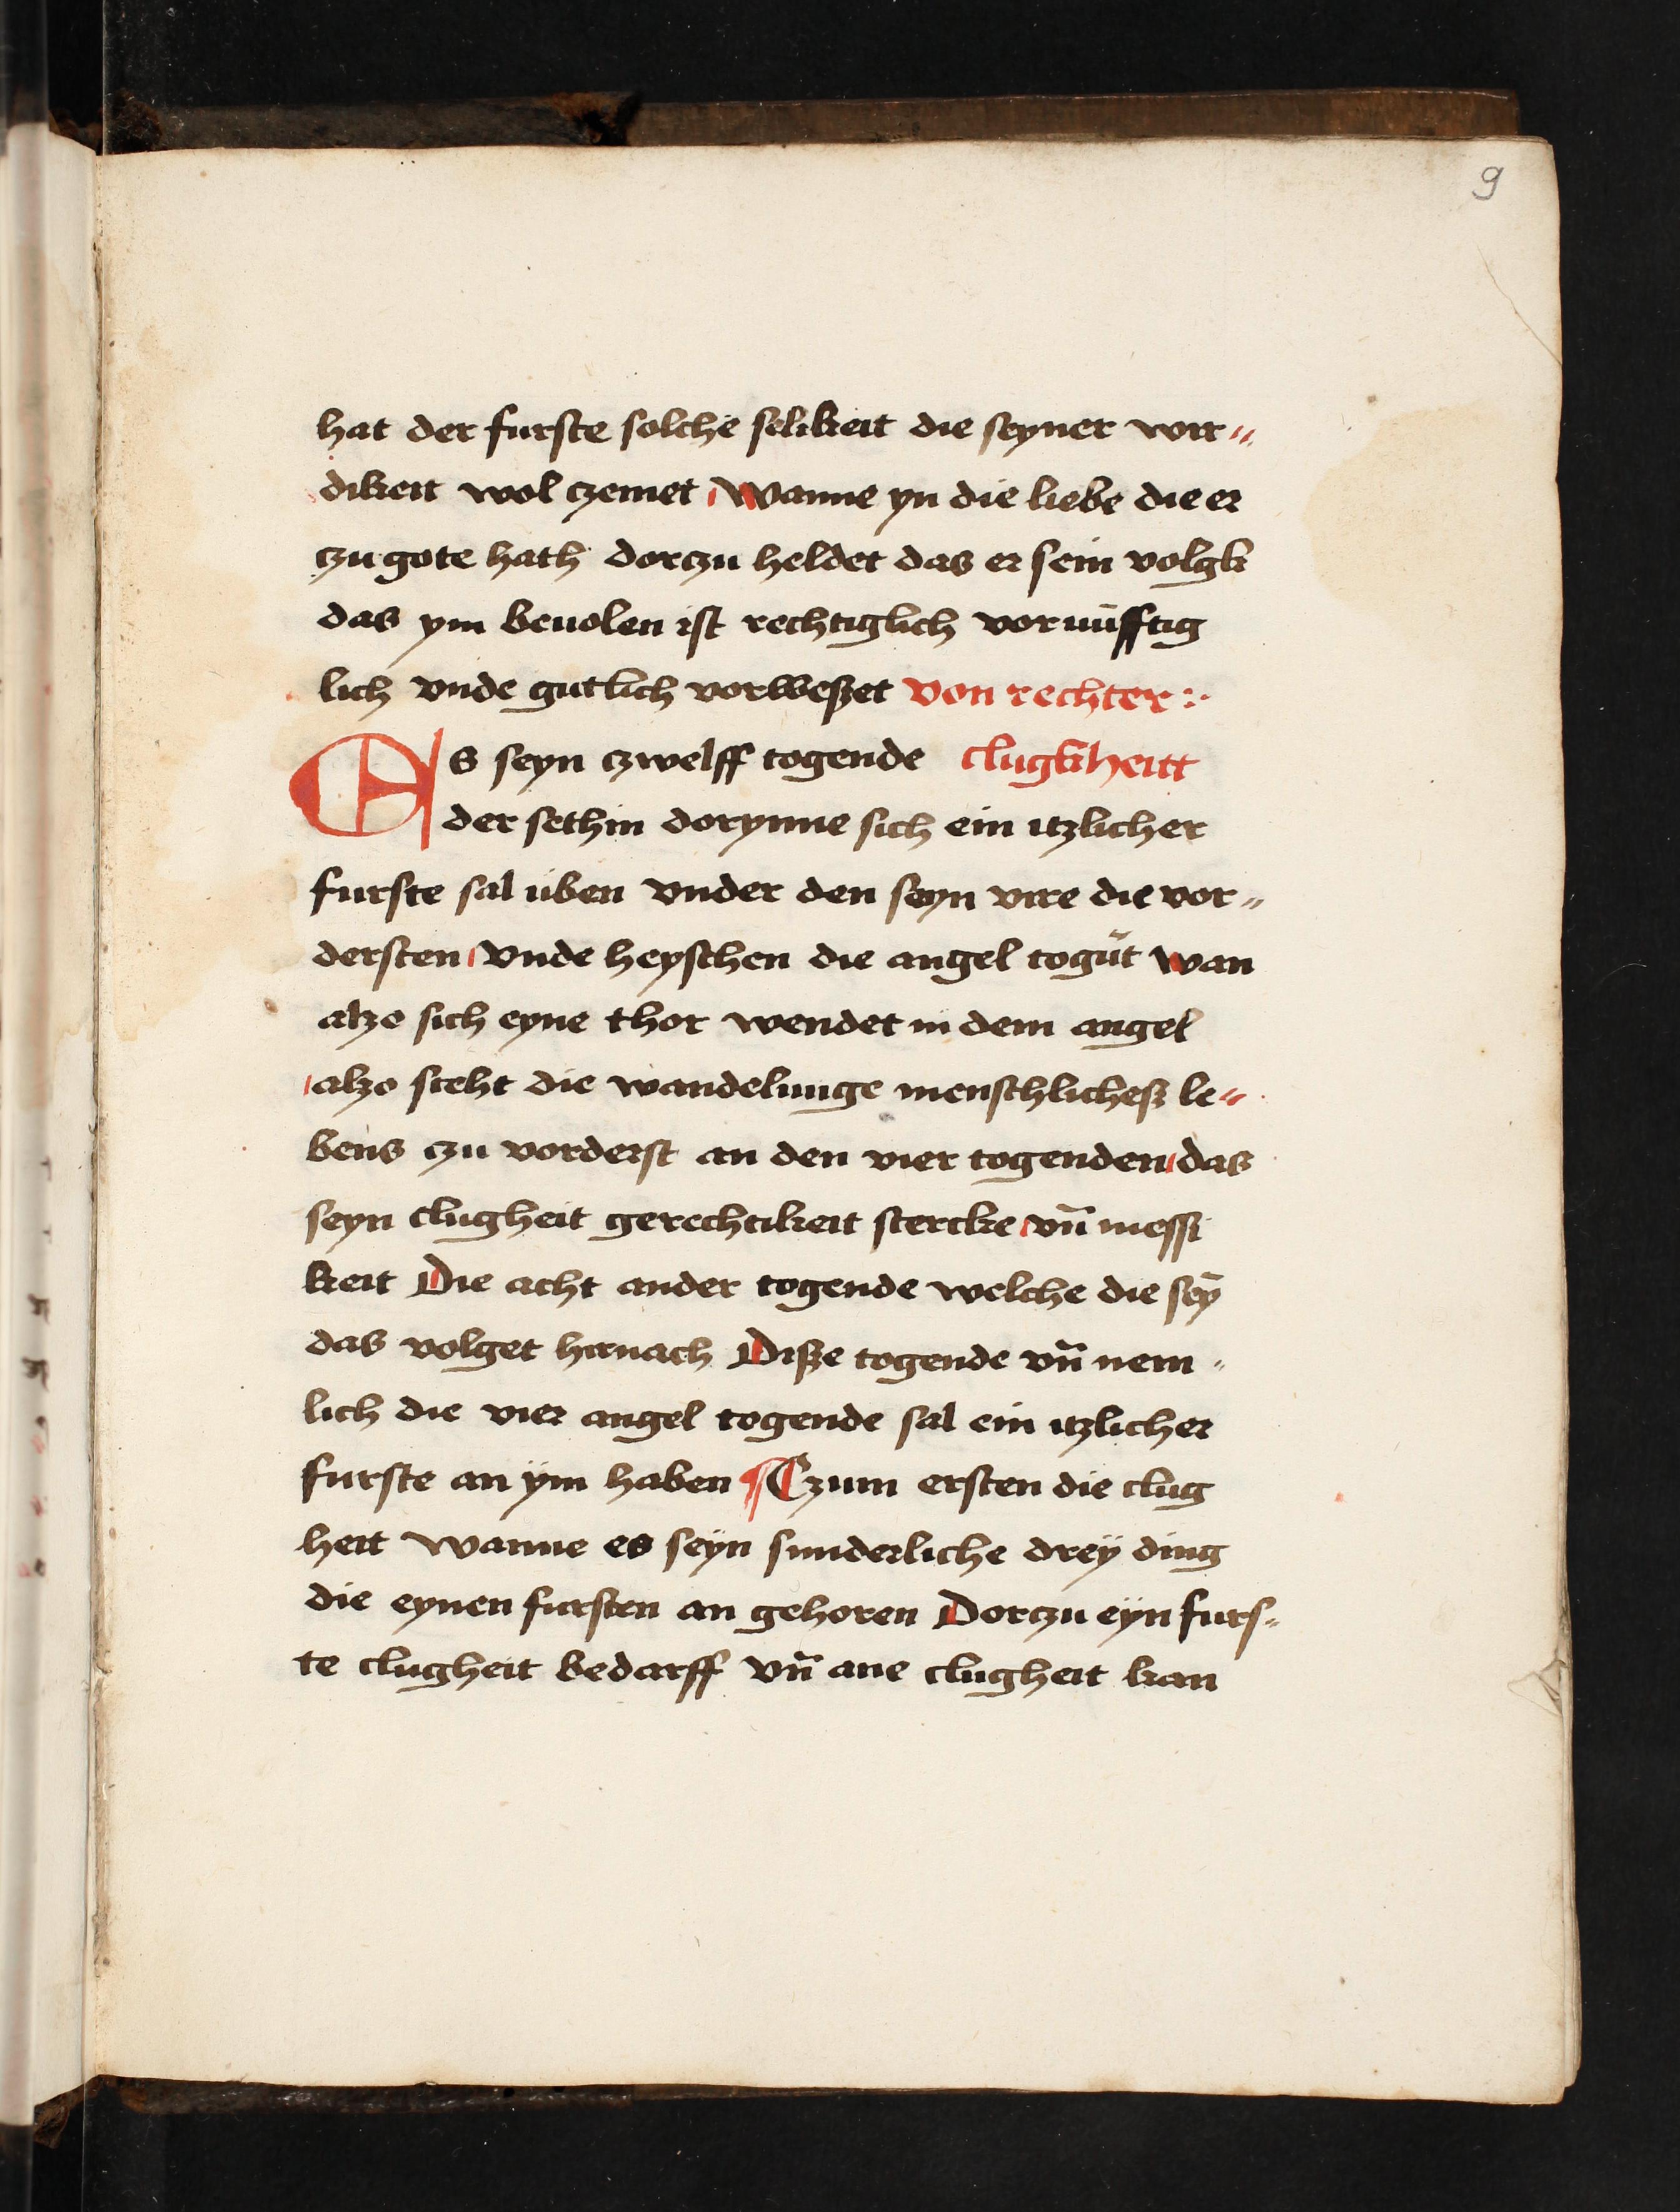 9
hat der furste solche selikeit die seyner wir〃
dikeit wol czemet Wanne yn die liebe die er
czu gote hath dorczu heldet das er sein volgk
das ym beuolen ist rechtiglich vornufftig
lich vnde gutlich vorweßet von rechter :·
Es seyn czwelff togende clugkheitt
der sethin dorynne sich ein itzlicher
furste sal uben vnder den seyn vire die vor〃
dersten Vnde heyschen die angel togūt wan
alzo sich eyne thor wendet in dem angel
alzo steht die wandelunge menschlicheß le〃
bens czu vorderst an den vier togenden das
seyn clugheit gerechtikeit stercke vn̄ messi
keit Die acht ander togende welche die seȳ
das volget hirnach Diße togende vn̄ nem〃
lich die vier angel togende sal ein itzlicher
furste an ÿm haben ¶ Czum ersten die clug
heit wanne es seÿn sunderliche dreÿ ding
die eynen fursten an gehoren Dorczu eÿn furs〃
te clugheit bedarff vn̄ ane clugheit kan